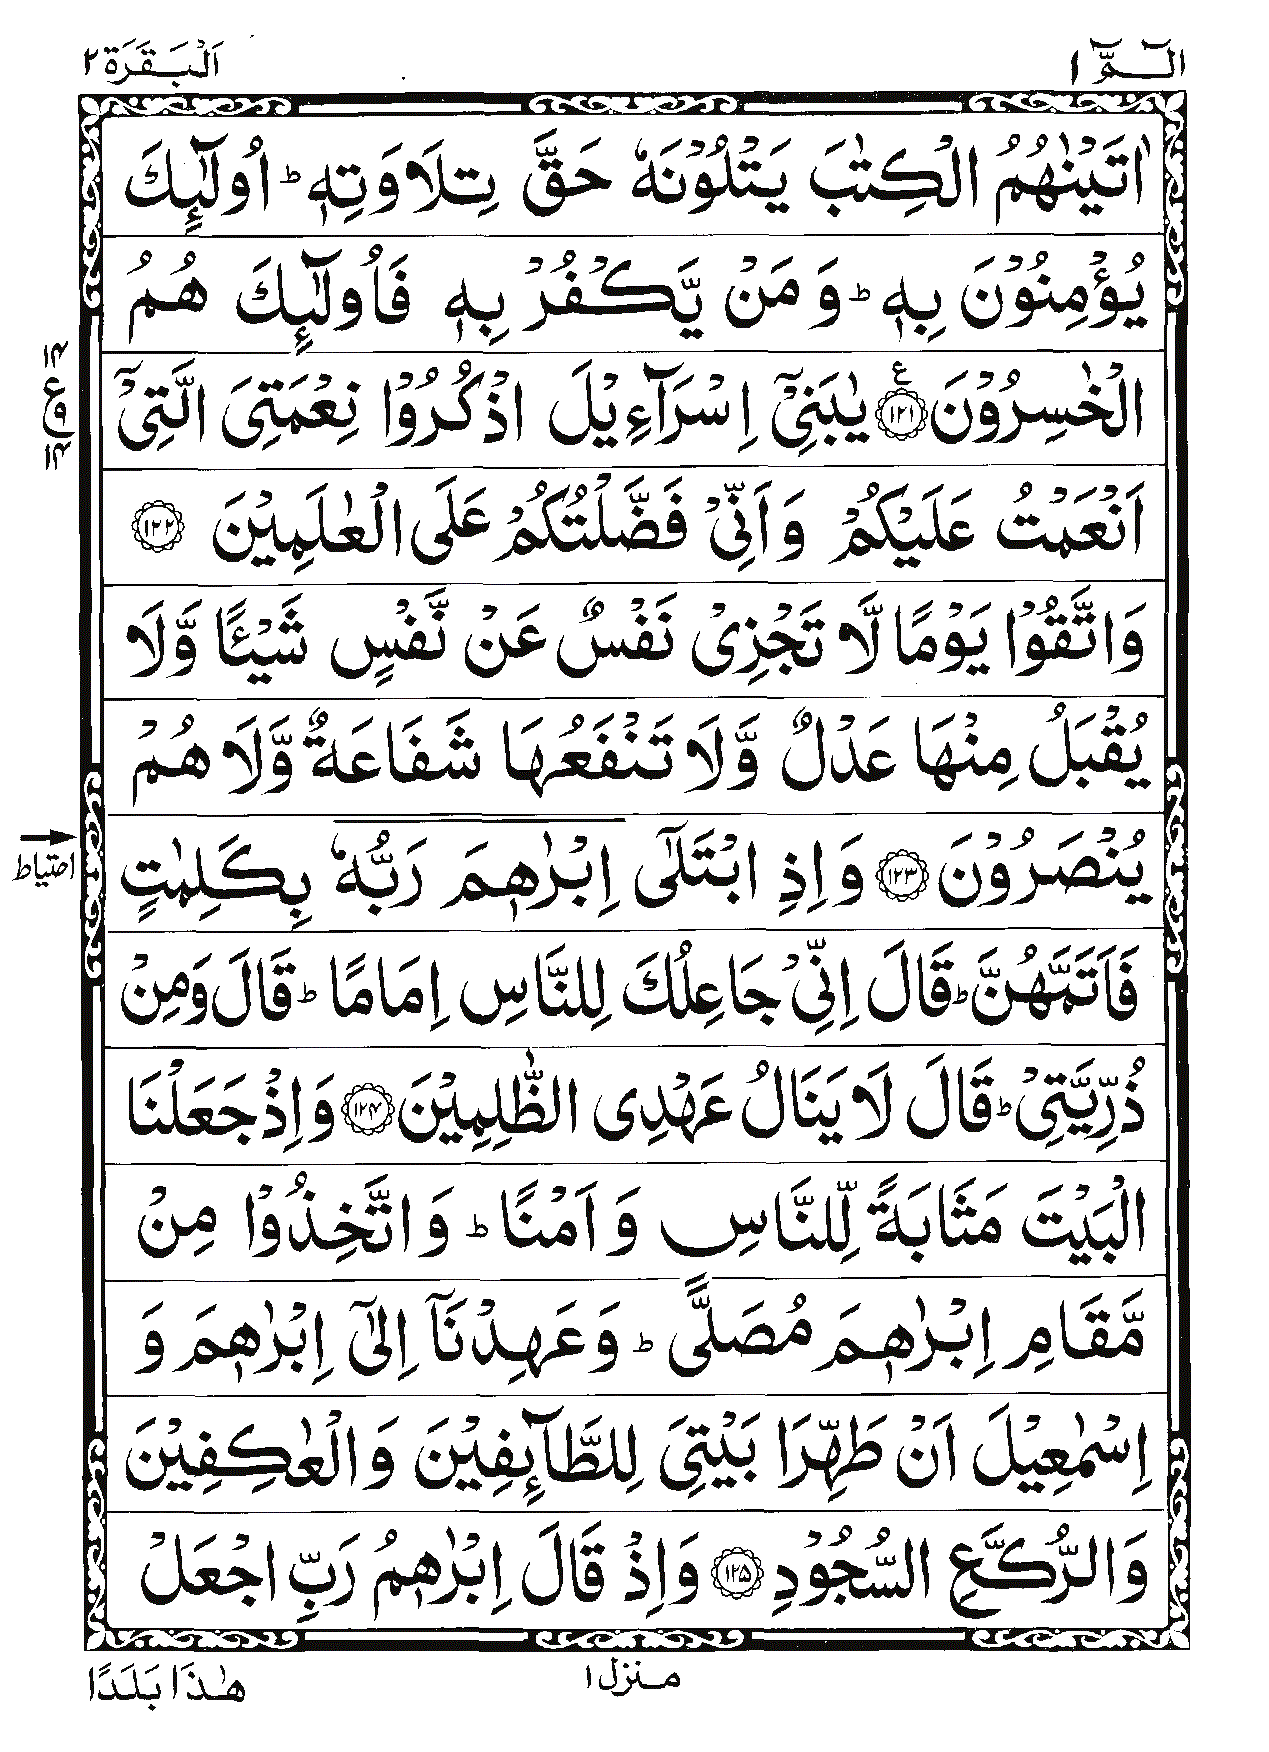 الٓمّٓ ١
اَلْبَقَرَة ٢
اٰتَيْنٰهُمُ الْكِتٰبَ يَتْلُوْنَهٗ حَقَّ تِلَاوَتِهٖ ؕ اُولٰٓئِكَ
يُؤْمِنُوْنَ بِهٖ ؕ وَ مَنْ يَّكْفُرْ بِهٖ فَاُولٰٓئِكَ هُمُ
الْخٰسِرُوْنَ ۝١٢١ ع يٰبَنِيْٓ اِسْرَآءِيْلَ اذْكُرُوْا نِعْمَتِيَ الَّتِيْٓ
اَنْعَمْتُ عَلَيْكُمْ وَ اَنِّيْ فَضَّلْتُكُمْ عَلَى الْعٰلَمِيْنَ ۝١٢٢
١٤
ع
٩
١٤
وَاتَّقُوْا يَوْمًا لَّا تَجْزِيْ نَفْسٌ عَنْ نَّفْسٍ شَيْئًا وَّلَا
يُقْبَلُ مِنْهَا عَدْلٌ وَّلَا تَنْفَعُهَا شَفَاعَةٌ وَّلَا هُمْ
يُنْصَرُوْنَ ۝١٢٣ وَ اِذِ ابْتَلٰٓى اِبْرٰهٖمَ رَبُّهٗ بِكَلِمٰتٍ
احتیاط
فَاَتَمَّهُنَّ ؕ قَالَ اِنِّيْ جَاعِلُكَ لِلنَّاسِ اِمَامًا ؕ قَالَ وَمِنْ
ذُرِّيَّتِيْ ؕ قَالَ لَا يَنَالُ عَهْدِي الظّٰلِمِيْنَ ۝١٢٤ وَ اِذْ جَعَلْنَا
الْبَيْتَ مَثَابَةً لِّلنَّاسِ وَ اَمْنًا ؕ وَ اتَّخِذُوْا مِنْ
مَّقَامِ اِبْرٰهٖمَ مُصَلًّى ؕ وَ عَهِدْنَآ اِلٰٓى اِبْرٰهٖمَ وَ
اِسْمٰعِيْلَ اَنْ طَهِّرَا بَيْتِيَ لِلطَّآئِفِيْنَ وَ الْعٰكِفِيْنَ
وَ الرُّكَّعِ السُّجُوْدِ ۝١٢٥ وَ اِذْ قَالَ اِبْرٰهٖمُ رَبِّ اجْعَلْ
منزل ١
هٰذَا بَلَدًا